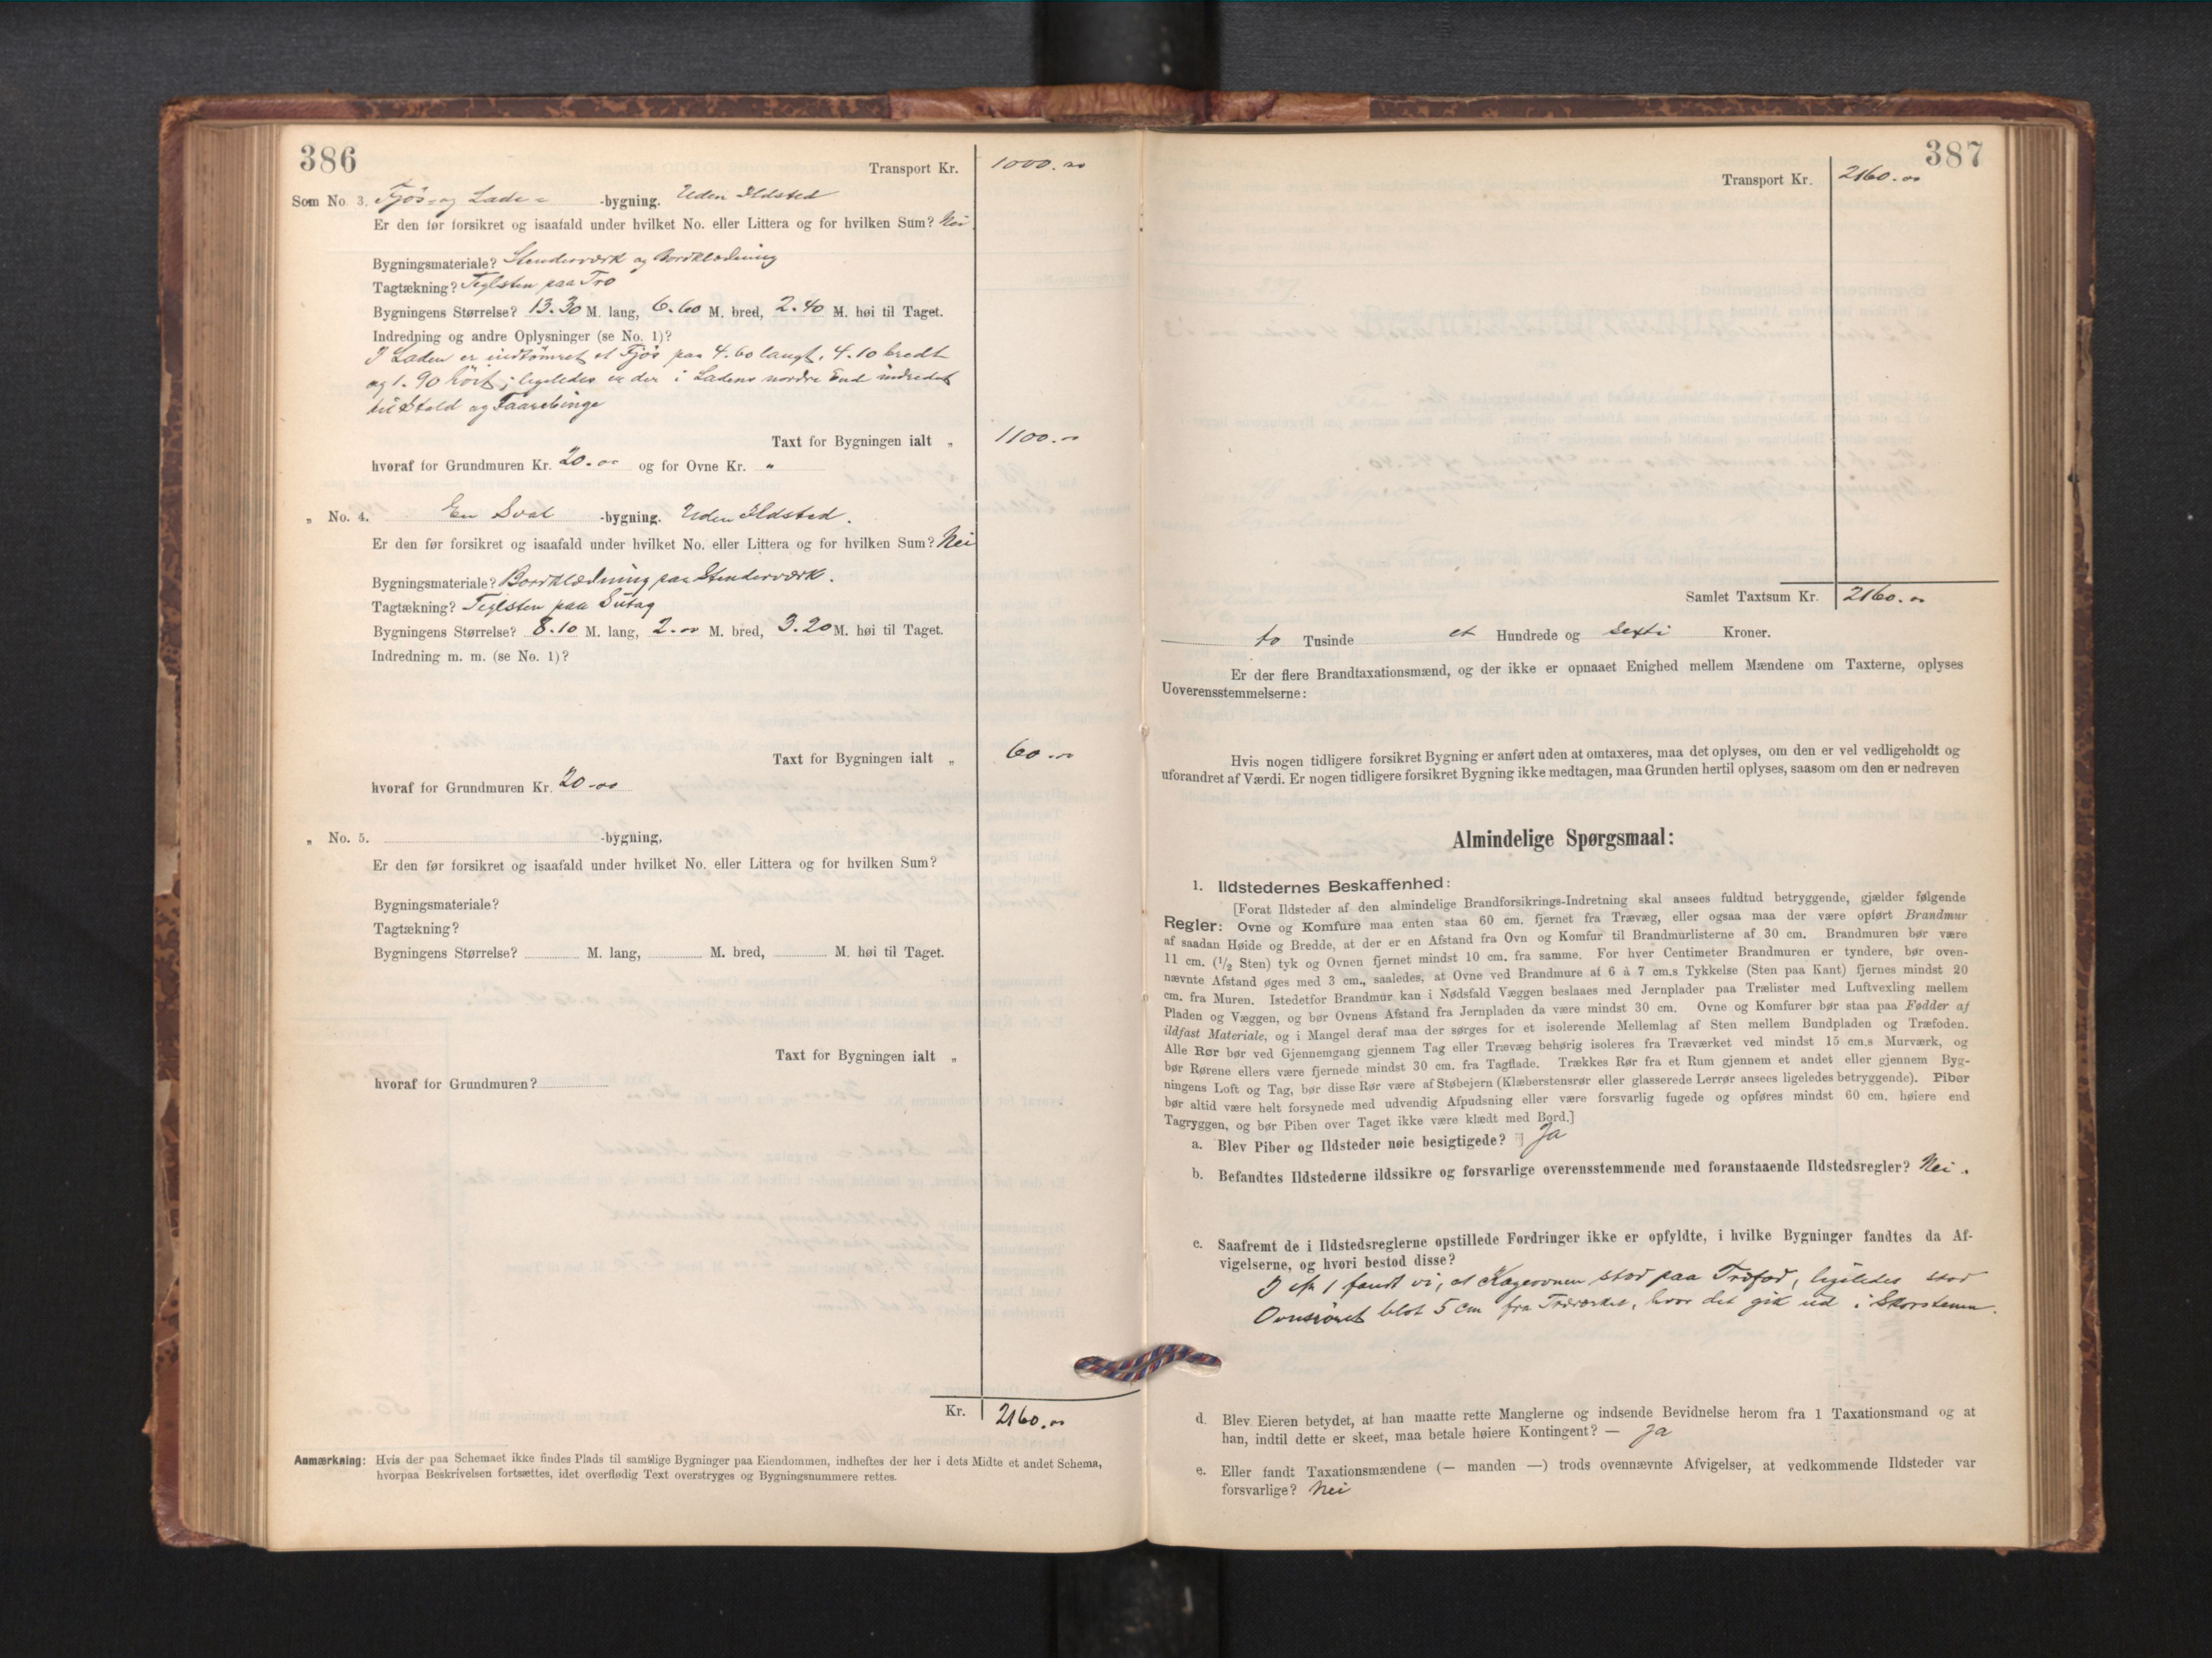 386
Transport Kr. 1000.00
Som No. 3. Fjøs- og Lade- -bygning. Uden Ildsted
Er den før forsikret og isaafald under hvilket No. eller Littera og for hvilken Sum? Nei
Bygningsmateriale? Stenderværk og Bordklædning
Tagtækning? Teglsten paa Tro
Bygningens Størrelse? 13.30 M. lang, 6.60 M. bred, 2.40 M. høi til Taget.
Indredning og andre Oplysninger (se No. 1)?
I Laden er indtömret et Fjös paa 4.60 langt, 4.10 bredt
og 1.90 höit; ligeledes er der i Ladens nordre End indredet
til Stald og Faarebinge
Taxt for Bygningen ialt „ 1100.00
hvoraf for Grundmuren Kr. 20.00 og for Ovne Kr. "
„ No. 4. En Sval -bygning. Uden Ildsted.
Er den før forsikret og isaafald under hvilket No. eller Littera og for hvilken Sum? Nei
Bygningsmateriale? Bordklædning paa Stenderværk.
Tagtækning? Teglsten paa Sutag
Bygningens Størrelse? 8.10 M. lang, 2.00 M. bred, 3.20 M. høi til Taget.
Indredning m. m. (se No. 1)?
Taxt for Bygningen ialt „ 60.00
hvoraf for Grundmuren Kr. 20.00
„ No. 5. -bygning,
Er den før forsikret og isaafald under hvilket No. eller Littera og for hvilken Sum?
Bygningsmateriale?
Tagtækning?
Bygningens Størrelse? M. lang, M. bred, M. høi til Taget.
Taxt for Bygningen ialt „
hvoraf for Grundmuren?
Kr. 2160.00
Anmærkning: Hvis der paa Schemaet ikke findes Plads til samtlige Bygninger paa Eiendommen, indheftes der her i dets Midte et andet Schema,
hvorpaa Beskrivelsen fortsættes, idet overflødig Text overstryges og Bygningsnummere rettes.
387
Transport Kr. 2160.00
Samlet Taxtsum Kr. 2160.00
to Tusinde et Hundrede og sexti Kroner.
Er der flere Brandtaxationsmænd, og der ikke er opnaaet Enighed mellem Mændene om Taxterne, oplyses
Uoverensstemmelserne:
Hvis nogen tidligere forsikret Bygning er anført uden at omtaxeres, maa det oplyses, om den er vel vedligeholdt og
uforandret af Værdi. Er nogen tidligere forsikret Bygning ikke medtagen, maa Grunden hertil oplyses, saasom om den er nedreven
Almindelige Spørgsmaal:
1. Ildstedernes Beskaffenhed:
[Forat Ildsteder af den almindelige Brandforsikrings-Indretning skal ansees fuldtud betryggende, gjælder følgende
Regler: Ovne og Komfure maa enten staa 60 cm. fjernet fra Trævæg, eller ogsaa maa der være opført Brandmur
af saadan Høide og Bredde, at der er en Afstand fra Ovn og Komfur til Brandmurlisterne af 30 cm. Brandmuren bør være
11 cm. (1/2 Sten) tyk og Ovnen fjernet mindst 10 cm. fra samme. For hver Centimeter Brandmuren er tyndere, bør oven-
nævnte Afstand øges med 3 cm., saaledes, at Ovne ved Brandmure af 6 à 7 cm.s Tykkelse (Sten paa Kant) fjernes mindst 20
cm. fra Muren. Istedetfor Brandmur kan i Nødsfald Væggen beslaaes med Jernplader paa Trælister med Luftvexling mellem
Pladen og Væggen, og bør Ovnens Afstand fra Jernpladen da være mindst 30 cm. Ovne og Komfurer bør staa paa Fødder af
ildfast Materiale, og i Mangel deraf maa der sørges for et isolerende Mellemlag af Sten mellem Bundpladen og Træfoden.
Alle Rør bør ved Gjennemgang gjennem Tag eller Trævæg behørig isoleres fra Træværket ved mindst 15 cm.s Murværk, og
bør Rørene ellers være fjernede mindst 30 cm. fra Tagflade. Trækkes Rør fra et Rum gjennem et andet eller gjennem Byg-
ningens Loft og Tag, bør disse Rør være af Støbejern (Klæberstensrør eller glasserede Lerrør ansees ligeledes betryggende). Piber
bør altid være helt forsynede med udvendig Afpudsning eller være forsvarlig fugede og opføres mindst 60 cm. høiere end
Tagryggen, og bør Piben over Taget ikke være klædt med Bord.]
a. Blev Piber og Ildsteder nøie besigtigede? Ja
b. Befandtes Ildstederne ildssikre og forsvarlige overensstemmende med foranstaaende Ildstedsregler? Nei.
c. Saafremt de i Ildstedsreglerne opstillede Fordringer ikke er opfyldte, i hvilke Bygninger fandtes da Af-
vigelserne, og hvori bestod disse?
I № 1 fandt vi, at Kageovnen stod paa Træfod, ligeledes stod
Ovnsröret blot 5 cm fra Træværket, hvor det gik ud i Skorstenen.
d. Blev Eieren betydet, at han maatte rette Manglerne og indsende Bevidnelse herom fra 1 Taxationsmand og at
han, indtil dette er skeet, maa betale høiere Kontingent? — Ja
e. Eller fandt Taxationsmændene (— manden —) trods ovennævnte Afvigelser, at vedkommende Ildsteder var
forsvarlige? Nei